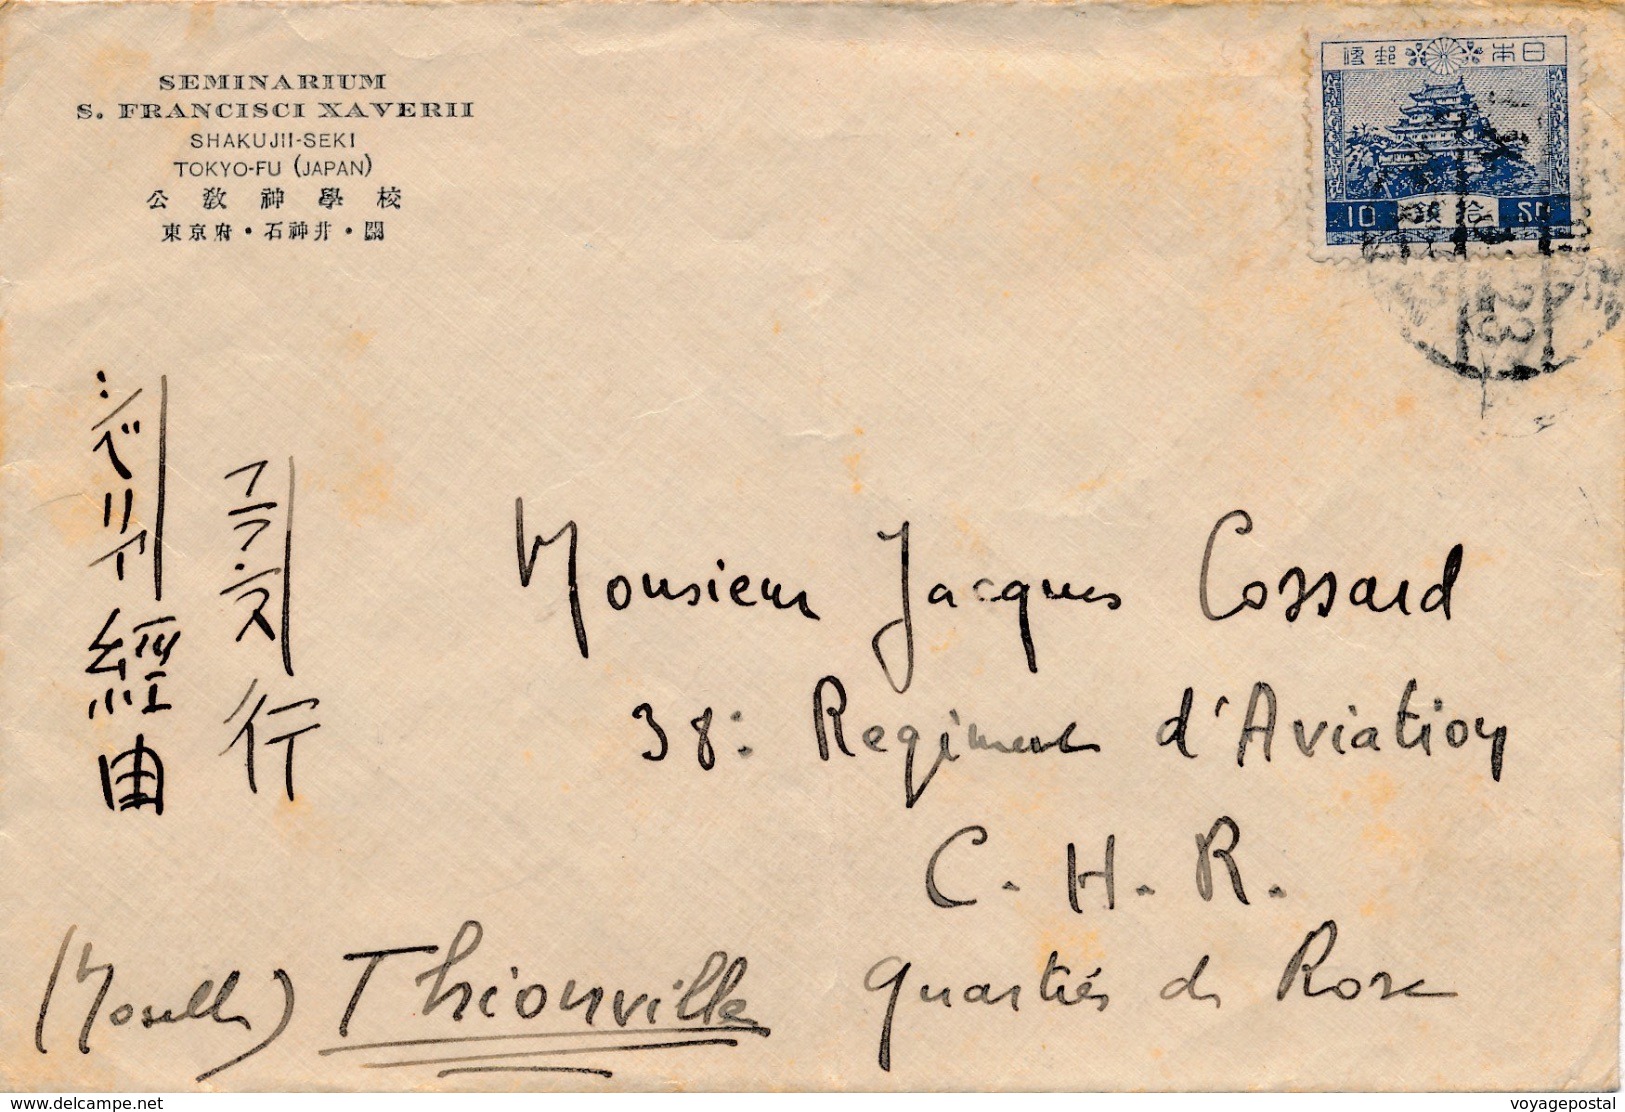 SEMINARIUM
S. FRANCISCI XAVERII
SHAKUJII-SEKI
TOKYO-FU (JAPAN)
公教神學校
東京府・石神井・關
日本郵便
10 銭拾 SN
シベリア經由
フランス行
Monsieur Jacques Cossard
38e Regiment d'Aviation
C. H. R.
Quartiés de Rose
(Moselle) Thionville
www.delcampe.net
voyagepostal